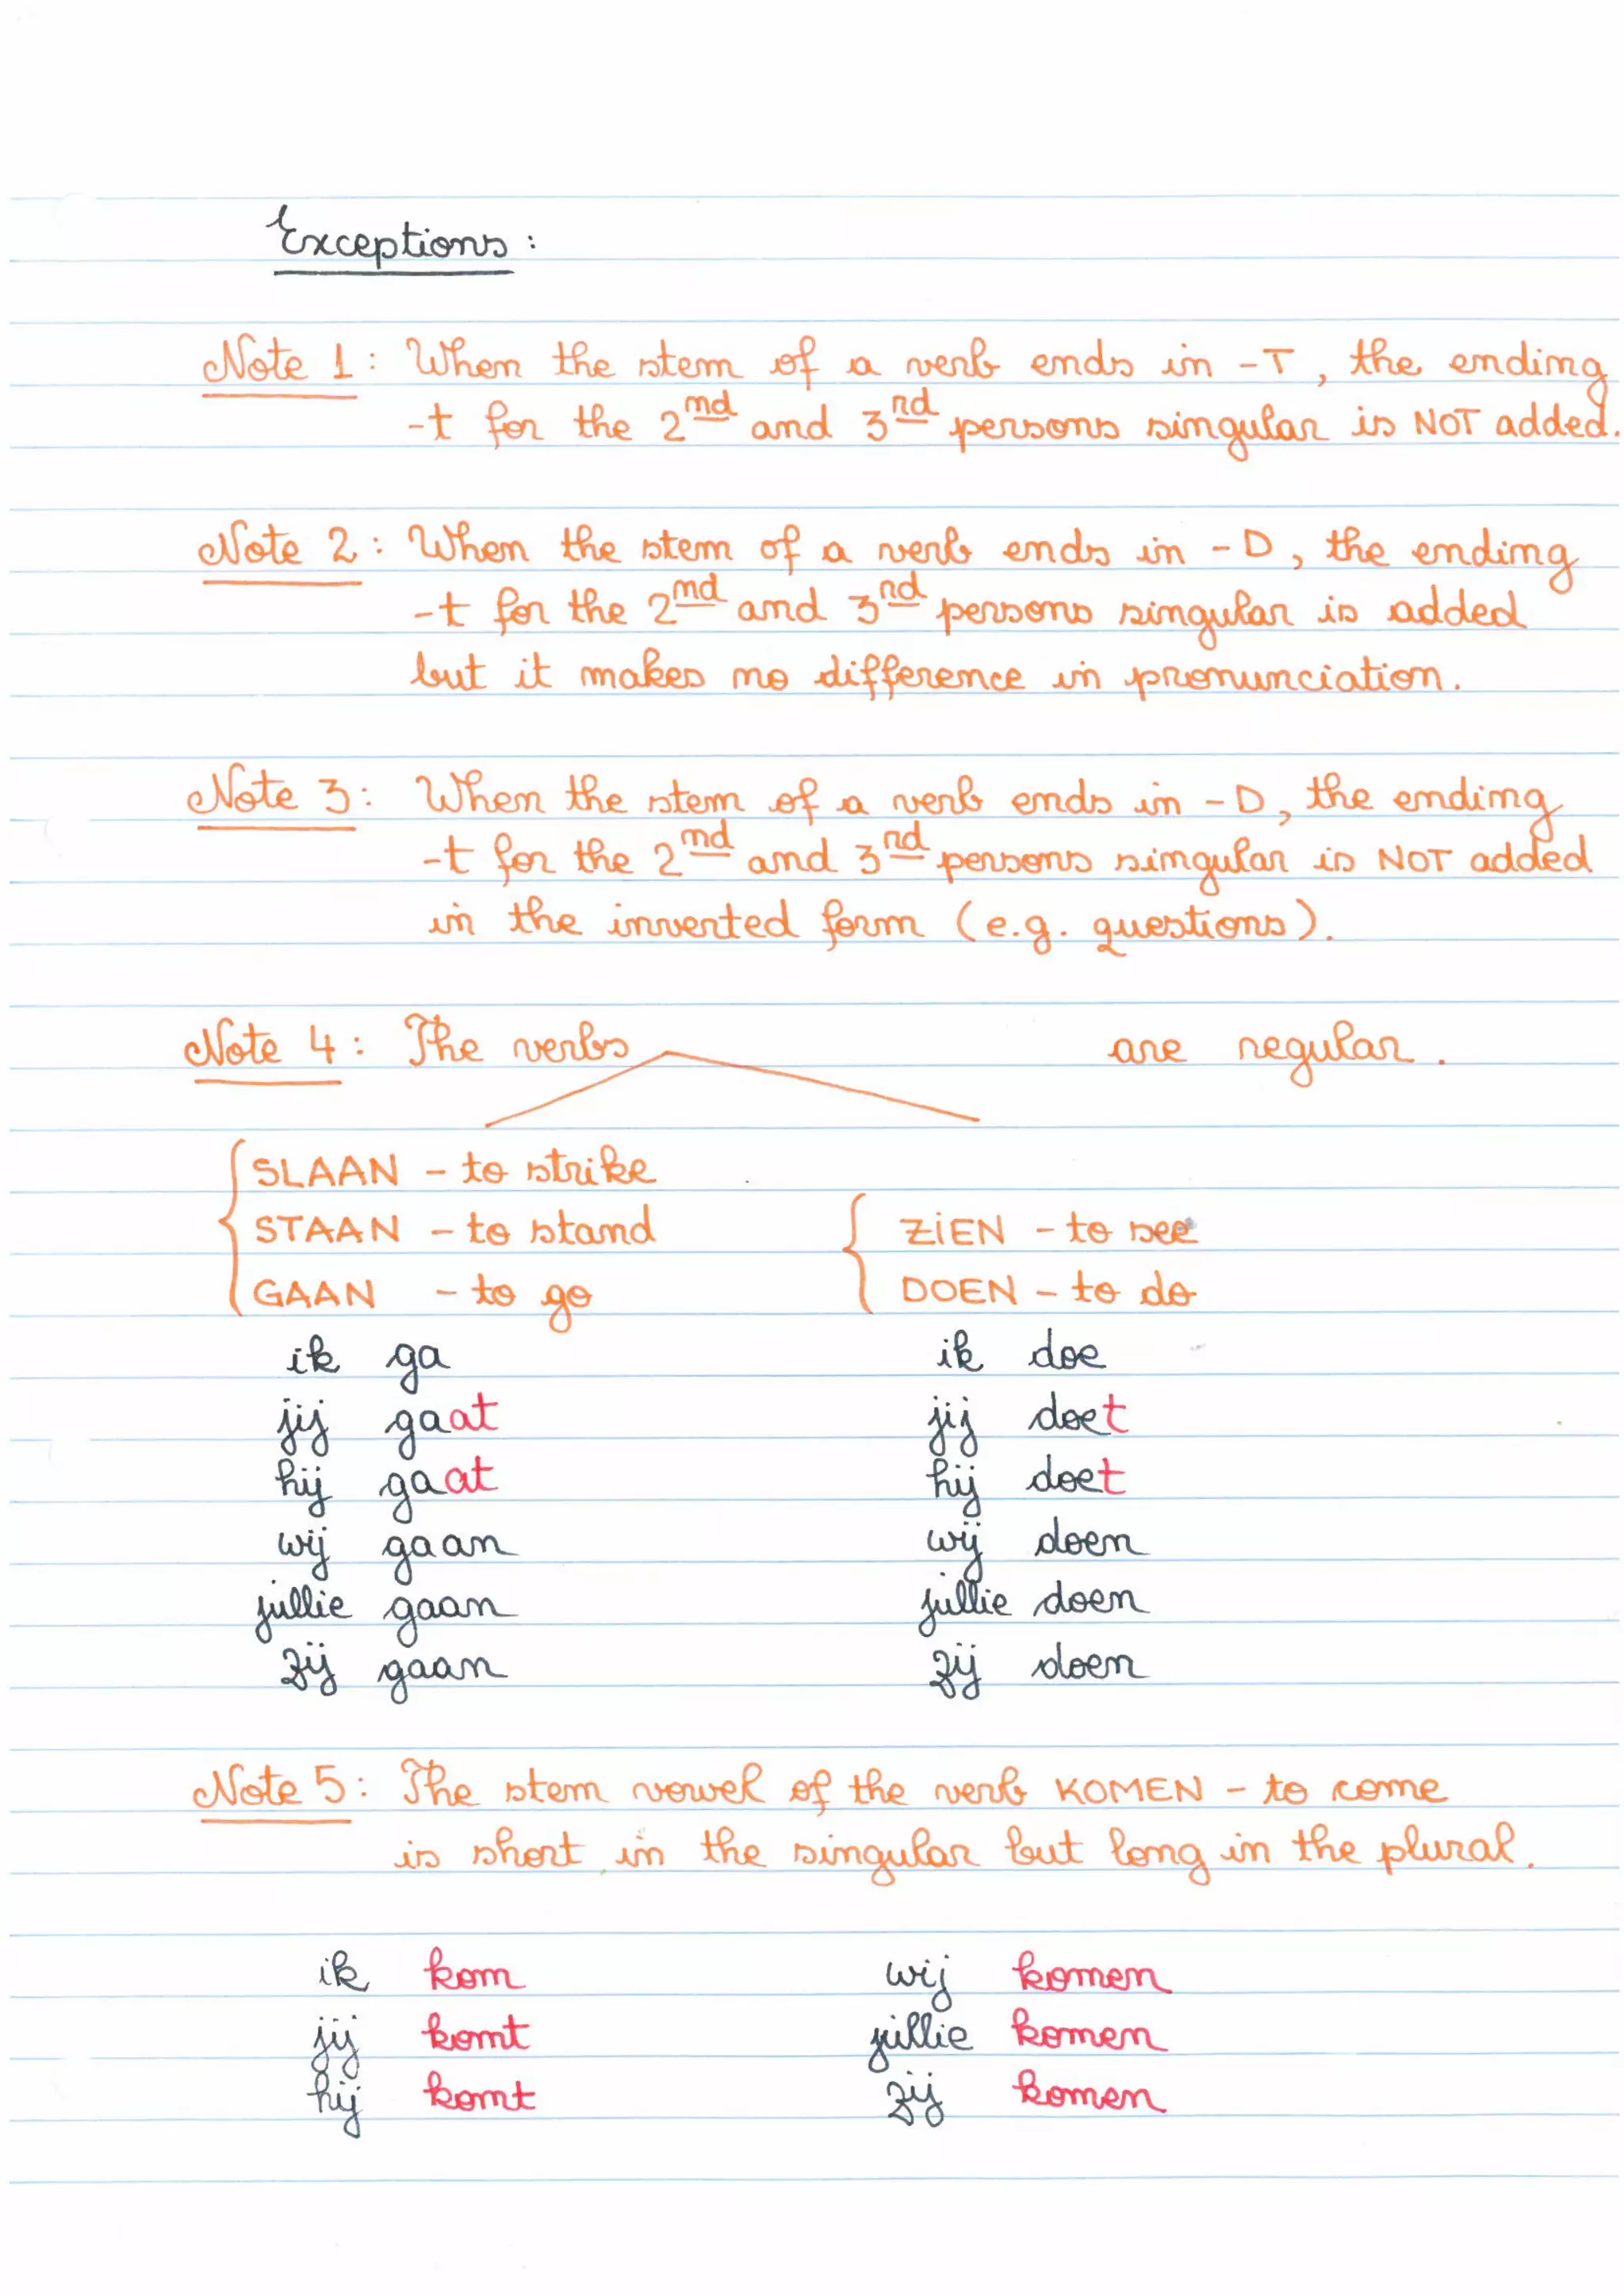 Exceptions :
Note 1 : When the stem of a verb ends in -T, the ending
-t for the 2nd and 3rd persons singular is NOT added.
Note 2 : When the stem of a verb ends in -D, the ending
-t for the 2nd and 3rd persons singular is added
but it makes no difference in pronunciation.
Note 3 : When the stem of a verb ends in -D, the ending
-t for the 2nd and 3rd persons singular is NOT added
in the inverted form (e.g. questions).
Note 4 : The verbs are regular.
SLAAN - to strike
STAAN - to stand
GAAN - to go
ZiEN - to see
DOEN - to do
ik ga
jij gaat
hij gaat
wij gaan
jullie gaan
zij gaan
ik doe
jij doet
hij doet
wij doen
jullie doen
zij doen
Note 5 : The stem vowel of the verb KOMEN - to come
is short in the singular but long in the plural.
ik kom
jij komt
hij komt
wij komen
jullie komen
zij komen